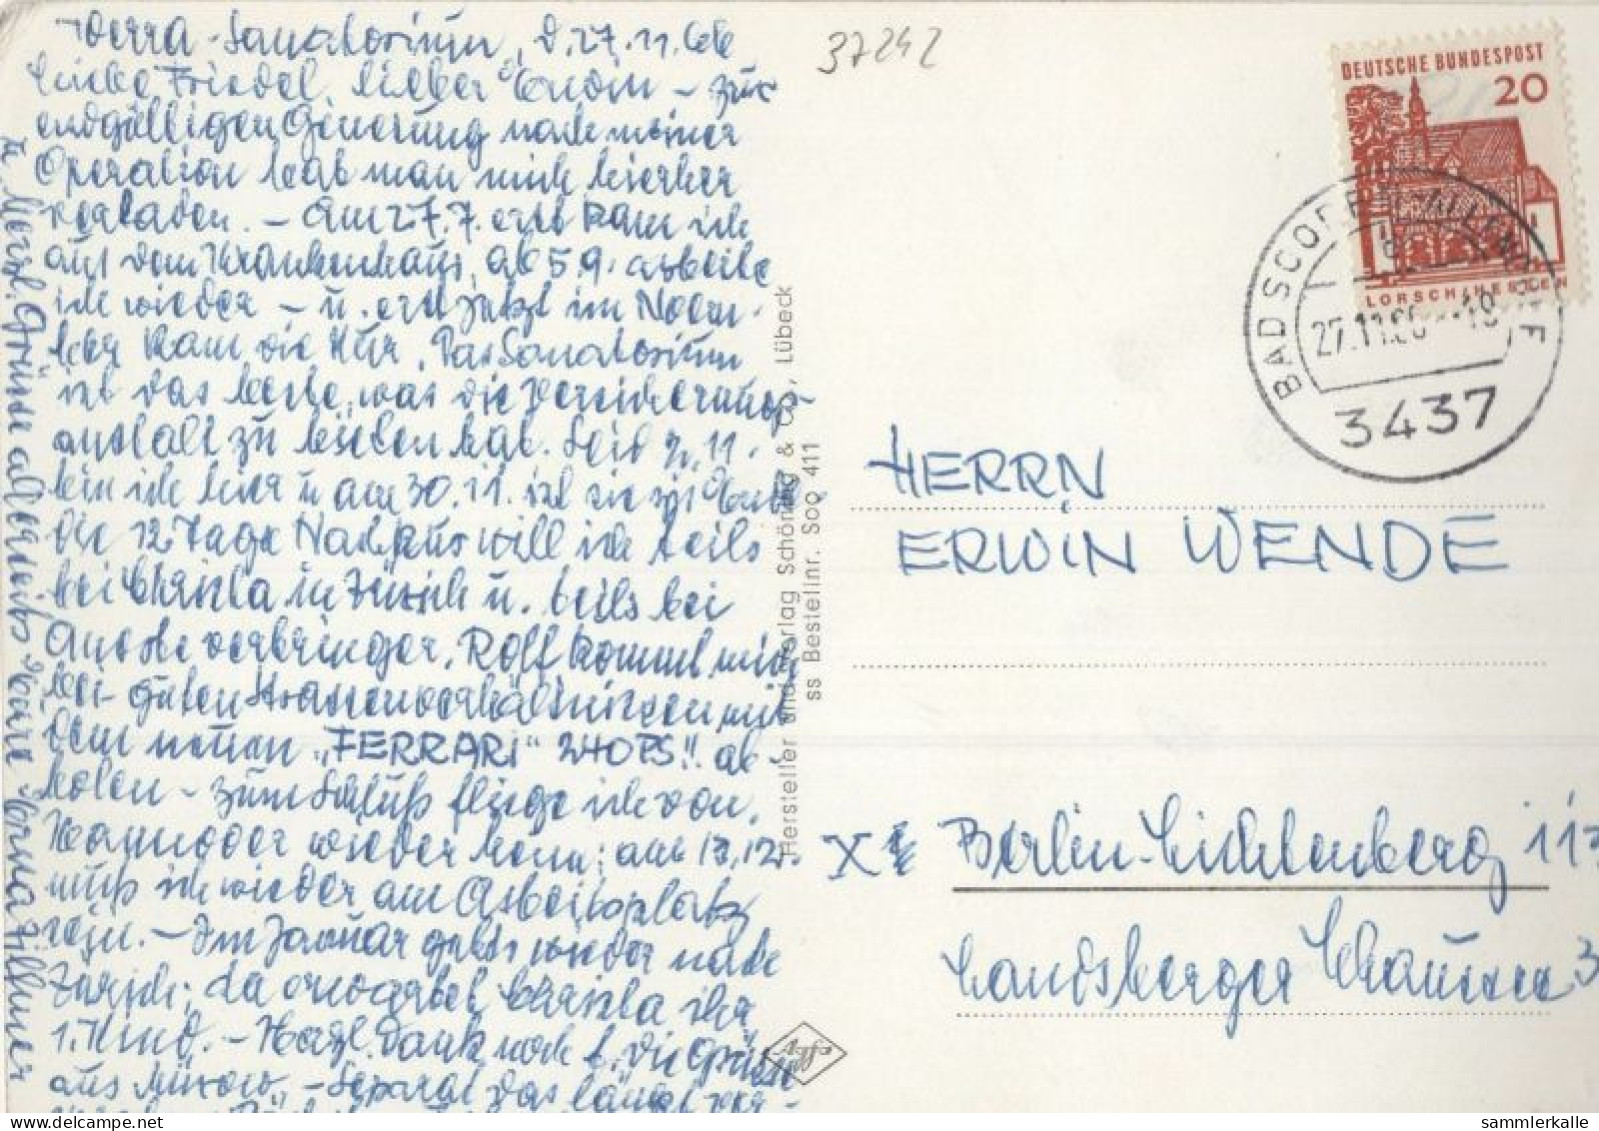 Werra-Sanatorium, d. 27.11.66
Liebe Friedel, lieber Erwin – zur
endgültigen Genesung nach meiner
Operation hat man mich hierher
verladen. – Am 27.7. erst kam ich
aus dem Krankenhaus, ab 5.9. arbeite
ich wieder – u. erst jetzt im Novem-
ber kam die Kur. Das Sanatorium
ist das beste, was die Versicherungs-
anstalt zu bieten hat. Seit 2.11.
bin ich hier u. am 30.11. ist sie zu Ende
Die 12 Tage Nachkur will ich teils
bei Christa in Zürich u. teils bei
verbringen. Rolf kommt mich
bei guten Strassenverhältnissen mit
dem neuen „FERRARI" 240 PS!! ab-
holen – zum Schluß fliege ich von
Hannover wieder heim; am 13.12.
muß ich wieder am Arbeitsplatz
sein. – Im Januar gehts wieder nach
Zürich; da erwartet Christa ihr
1. Kind. – Herzl. Dank noch f. die Grüße
aus – Separat das längst ver-
Herzl. Grüsse allerseits Eure Herma Fillmer
37242
DEUTSCHE BUNDESPOST
20
LORSCH/HESSEN
BAD SOODEN-ALLENDORF
27.11.66 -18
3437
HERRN
ERWIN WENDE
X Berlin-Lichtenberg 113
Landsberger Chaussee 3
Hersteller und Verlag Schöning & Co., Lübeck
ss Bestellnr. Soo 411
Agfa
sammlerkalle